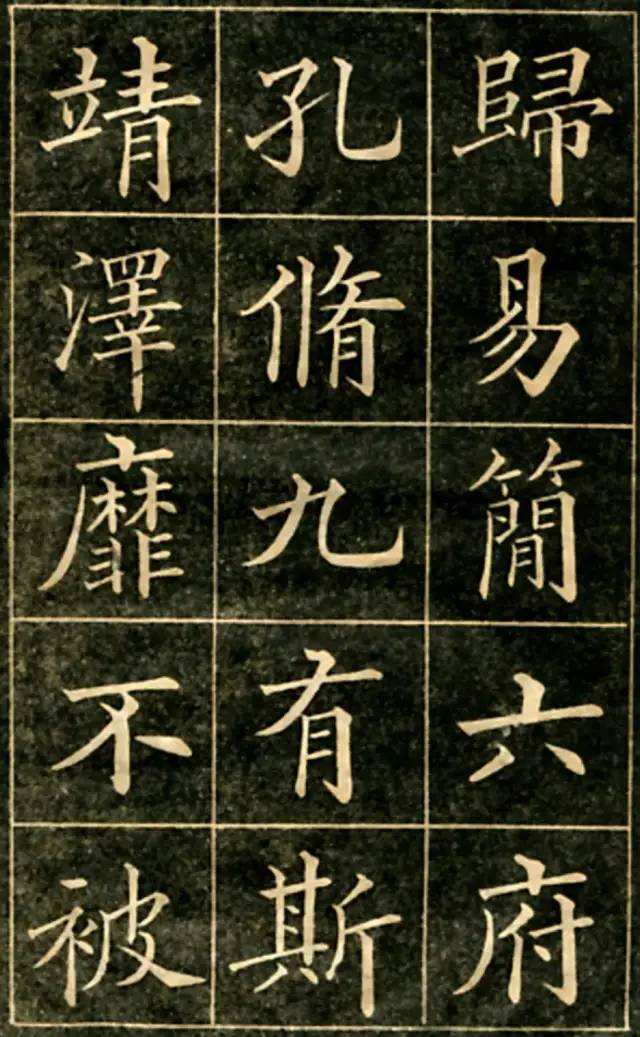 歸易簡六府
孔脩九有斯
靖澤靡不被